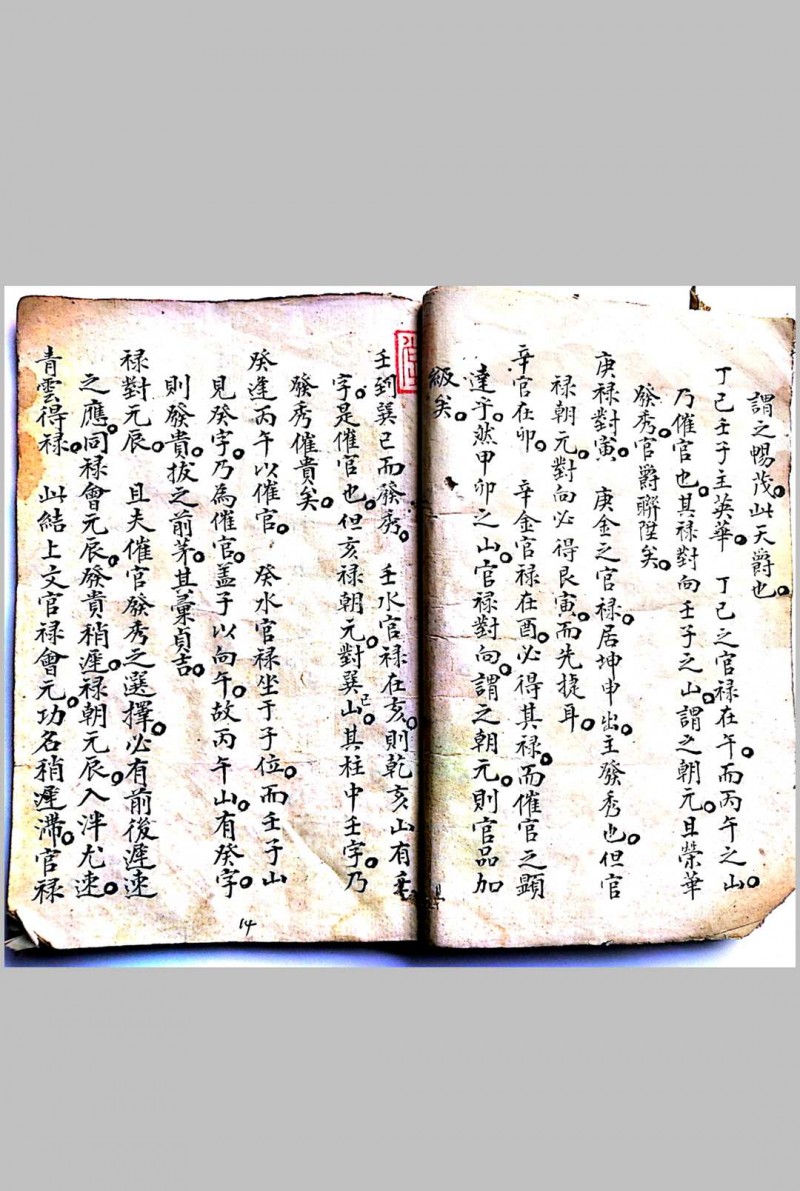 謂之暢茂。此天爵也。
丁己壬子主英華。 丁己之官禄在午。而丙午之山。
乃催官也。其禄對向壬子之山。謂之朝元。且榮華
發秀。官爵聯陞矣。
庚禄對寅。 庚金之官禄。居坤申出。主發秀也。但官
禄朝元。對向必得艮寅。而先捷耳。
辛官在卯。 辛金官禄在酉。必得其禄。而催官之顯
達乎。然甲卯之山。官禄對向。謂之朝元。則官品加
級矣。
壬到巽巳而發秀。 壬水官禄在亥。則乾亥山有壬
字。是催官也。但亥禄朝元。對巽巳山。其柱中壬字。乃
發秀催貴矣。
癸逢丙午以催官。 癸水官禄坐于子位。而壬子山
見癸字。乃為催官。盖子以向午。故丙午山。有癸字。
則發貴。拔之前茅。其彙貞吉。
禄對元辰。 且夫催官發秀之選擇。必有前後遲速
之應。同禄會元辰。發貴稍遲。禄朝元辰。入泮尤速。
青雲得禄。 此結上文官禄會元。功名稍遲滯。官禄
14